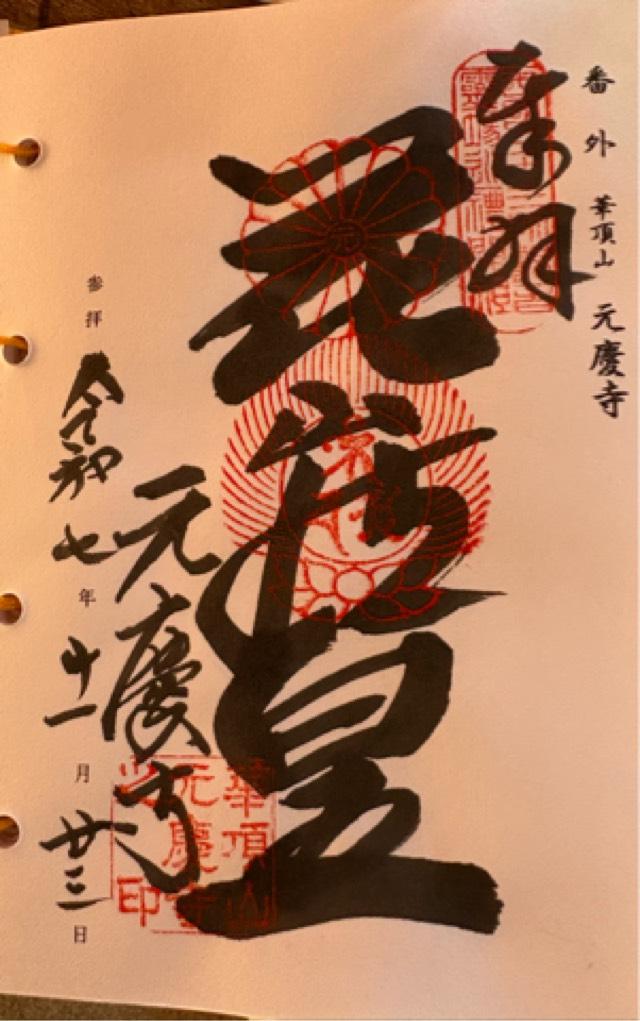 番外 華頂山 元慶寺
奉拝
花山法皇
元
元慶寺
華頂山
元慶寺
之印
参拝 令和七年十一月廿三日